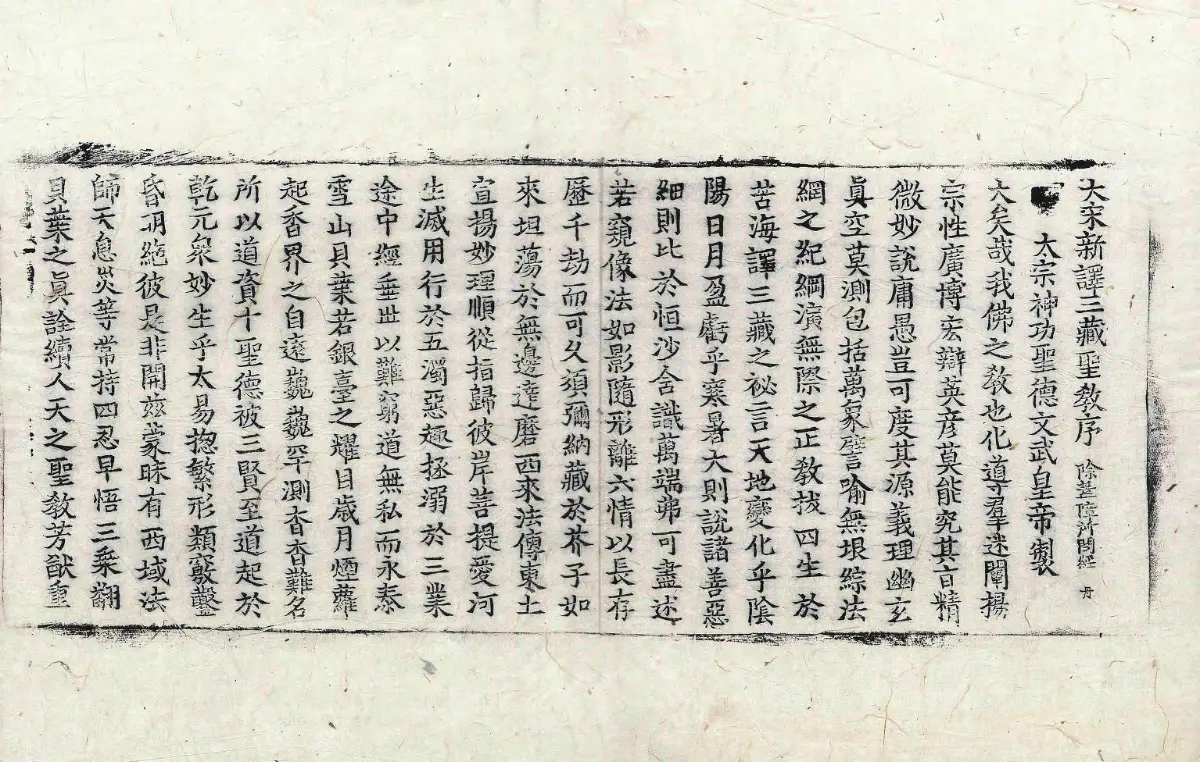 大宋新譯三藏聖敎序 除蓋障所問經 丹
太宗神功聖德文武皇帝製
大矣哉我佛之敎也化道羣迷闡揚
宗性廣博宏辯英彦莫能究其旨精
微妙說庸愚豈可度其源義理幽玄
眞空莫測包括萬象譬喻無垠綜法
網之紀綱演無際之正敎拔四生於
苦海譯三藏之祕言天地變化乎陰
陽日月盈虧乎寒暑大則說諸善惡
細則比於恒沙含識萬端弗可盡述
若窺像法如影隨形離六情以長存
歷千劫而可久須彌納藏於芥子如
來坦蕩於無邊達磨西來法傳東土
宣揚妙理順從指歸彼岸菩提愛河
生滅用行於五濁惡趣拯溺於三業
途中經垂世以難窮道無私而永泰
雪山貝葉若銀臺之耀目歲月煙蘿
起香界之自遠巍巍罕測杳杳難名
所以道資十聖德被三賢至道起於
乾元衆妙生乎太易揔繁形類竅鑿
昏明絶彼是非開兹蒙昧有西域法
師天息災等常持四忍早悟三乘翻
貝葉之眞詮續人天之聖敎芳猷重